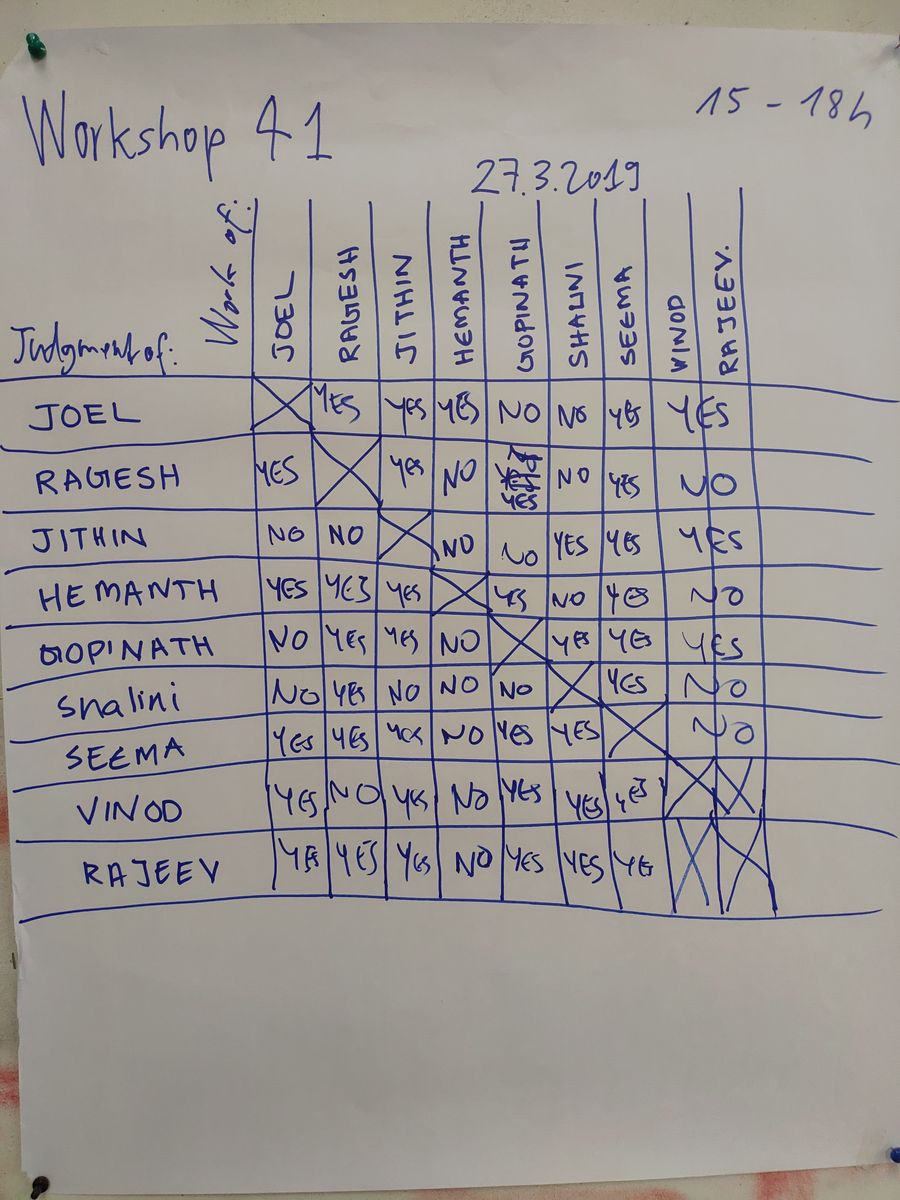 Workshop 41
15 - 18h
27.3.2019
Judgment of: Work of: JOEL RAGESH JITHIN HEMANTH GOPINATH SHALINI SEEMA VINOD RAJEEV.
JOEL YES YES YES NO NO YES YES
RAGESH YES YES NO YES NO YES NO
JITHIN NO NO NO NO YES YES YES
HEMANTH YES YES YES YES NO YES NO
GOPINATH NO YES YES NO YES YES YES
Shalini NO YES NO NO NO YES NO
SEEMA YES YES YES NO YES YES NO
VINOD YES NO YES NO YES YES YES
RAJEEV YES YES YES NO YES YES YES